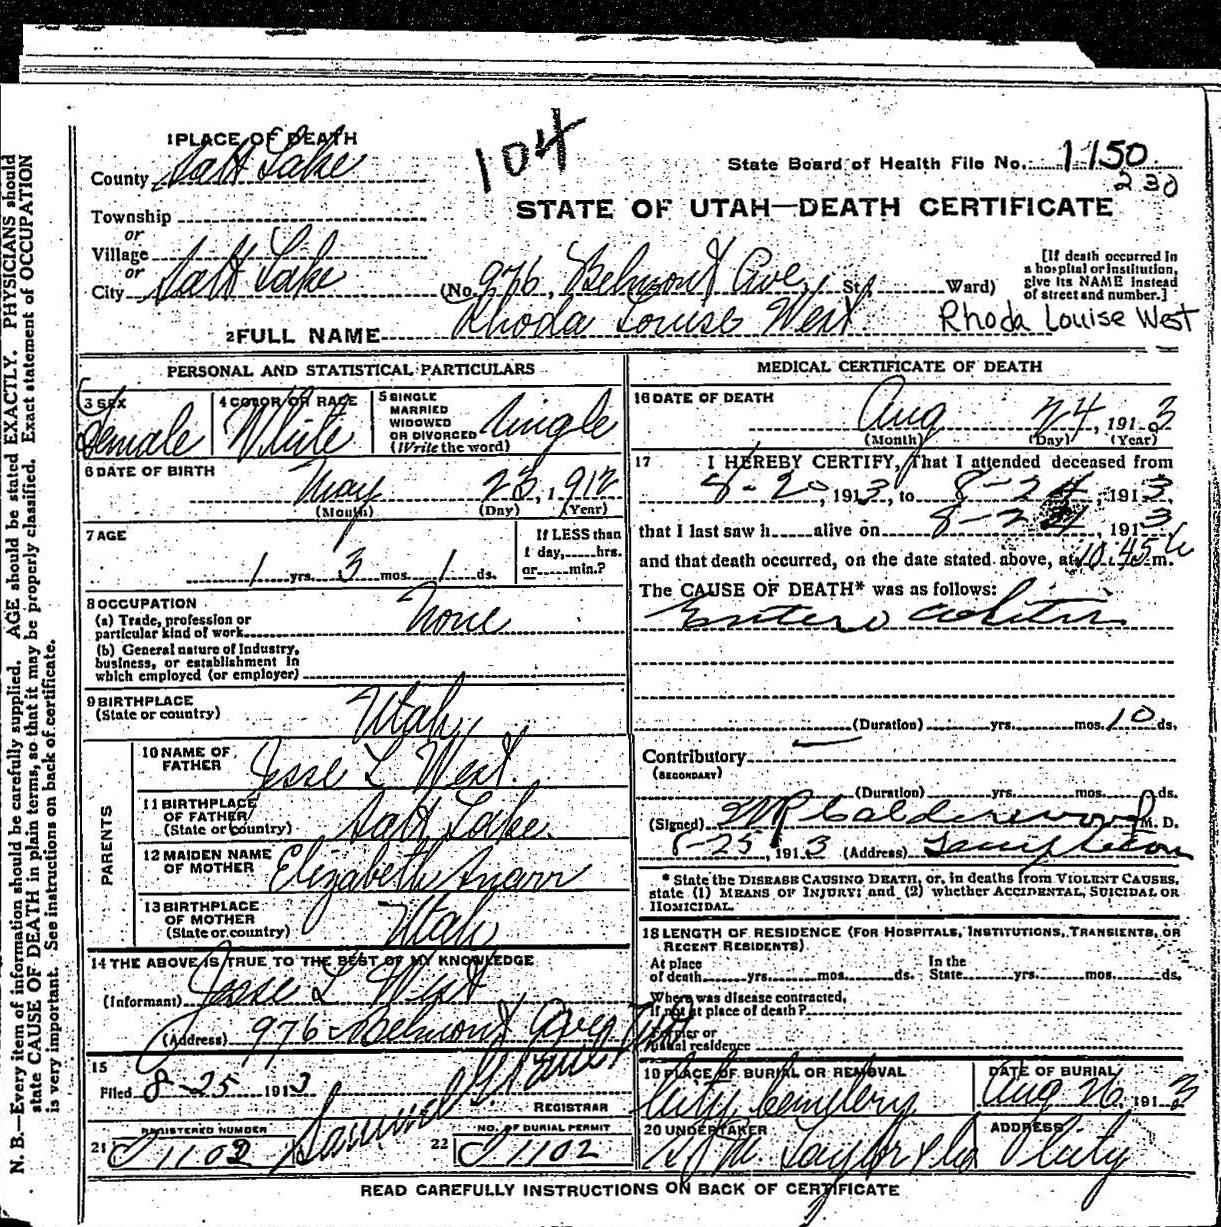 1 PLACE OF DEATH
104
State Board of Health File No. 1150
230
County Salt Lake
STATE OF UTAH—DEATH CERTIFICATE
Township
or
Village
or
City Salt Lake (No. 976, Belmont Ave, St., Ward)
[If death occurred in
a hospital or institution,
give its NAME instead
of street and number.]
2 FULL NAME Rhoda Louise West
Rhoda Louise West
PERSONAL AND STATISTICAL PARTICULARS
3 SEX
Female
4 COLOR OR RACE
White
5 SINGLE
MARRIED
WIDOWED
OR DIVORCED
(Write the word)
Single
6 DATE OF BIRTH
May 23, 1912
(Month) (Day) (Year)
7 AGE
1 yrs. 3 mos. 1 ds.
If LESS than
1 day, hrs.
or min.?
8 OCCUPATION
(a) Trade, profession or
particular kind of work None
(b) General nature of Industry,
business, or establishment in
which employed (or employer)
9 BIRTHPLACE
(State or country) Utah
PARENTS
10 NAME OF
FATHER Jesse L West
11 BIRTHPLACE
OF FATHER
(State or country) Salt Lake
12 MAIDEN NAME
OF MOTHER Elizabeth Snarr
13 BIRTHPLACE
OF MOTHER
(State or country) Utah
14 THE ABOVE IS TRUE TO THE BEST OF MY KNOWLEDGE
(Informant) Jesse L West
(Address) 976 Belmont Ave
15
Filed 8-25 1913
REGISTRAR
REGISTERED NUMBER
21 1102
NO. OF BURIAL PERMIT
22 1102
MEDICAL CERTIFICATE OF DEATH
16 DATE OF DEATH
Aug 24, 1913
(Month) (Day) (Year)
17 I HEREBY CERTIFY, That I attended deceased from
8-20, 1913, to 8-24, 1913,
that I last saw h alive on 8-24, 1913
and that death occurred, on the date stated above, at 10.45 m.
The CAUSE OF DEATH* was as follows:
Entero Colitis
(Duration) yrs. mos. 10 ds.
Contributory
(SECONDARY)
(Duration) yrs. mos. ds.
(Signed) Calderwood M. D.
8-25, 1913 (Address) Templeton
* State the DISEASE CAUSING DEATH, or, in deaths from VIOLENT CAUSES,
state (1) MEANS OF INJURY; and (2) whether ACCIDENTAL, SUICIDAL OR
HOMICIDAL.
18 LENGTH OF RESIDENCE (FOR HOSPITALS, INSTITUTIONS, TRANSIENTS, OR
RECENT RESIDENTS)
At place
of death yrs. mos. ds.
In the
State yrs. mos. ds.
Where was disease contracted,
if not at place of death?
Former or
usual residence
19 PLACE OF BURIAL OR REMOVAL
City Cemetery
DATE OF BURIAL
Aug 26, 1913
20 UNDERTAKER
S. M. Taylor & Co
ADDRESS
City
READ CAREFULLY INSTRUCTIONS ON BACK OF CERTIFICATE
N. B.—Every item of information should be carefully supplied. AGE should be stated EXACTLY. PHYSICIANS should
state CAUSE OF DEATH in plain terms, so that it may be properly classified. Exact statement of OCCUPATION
is very important. See instructions on back of certificate.